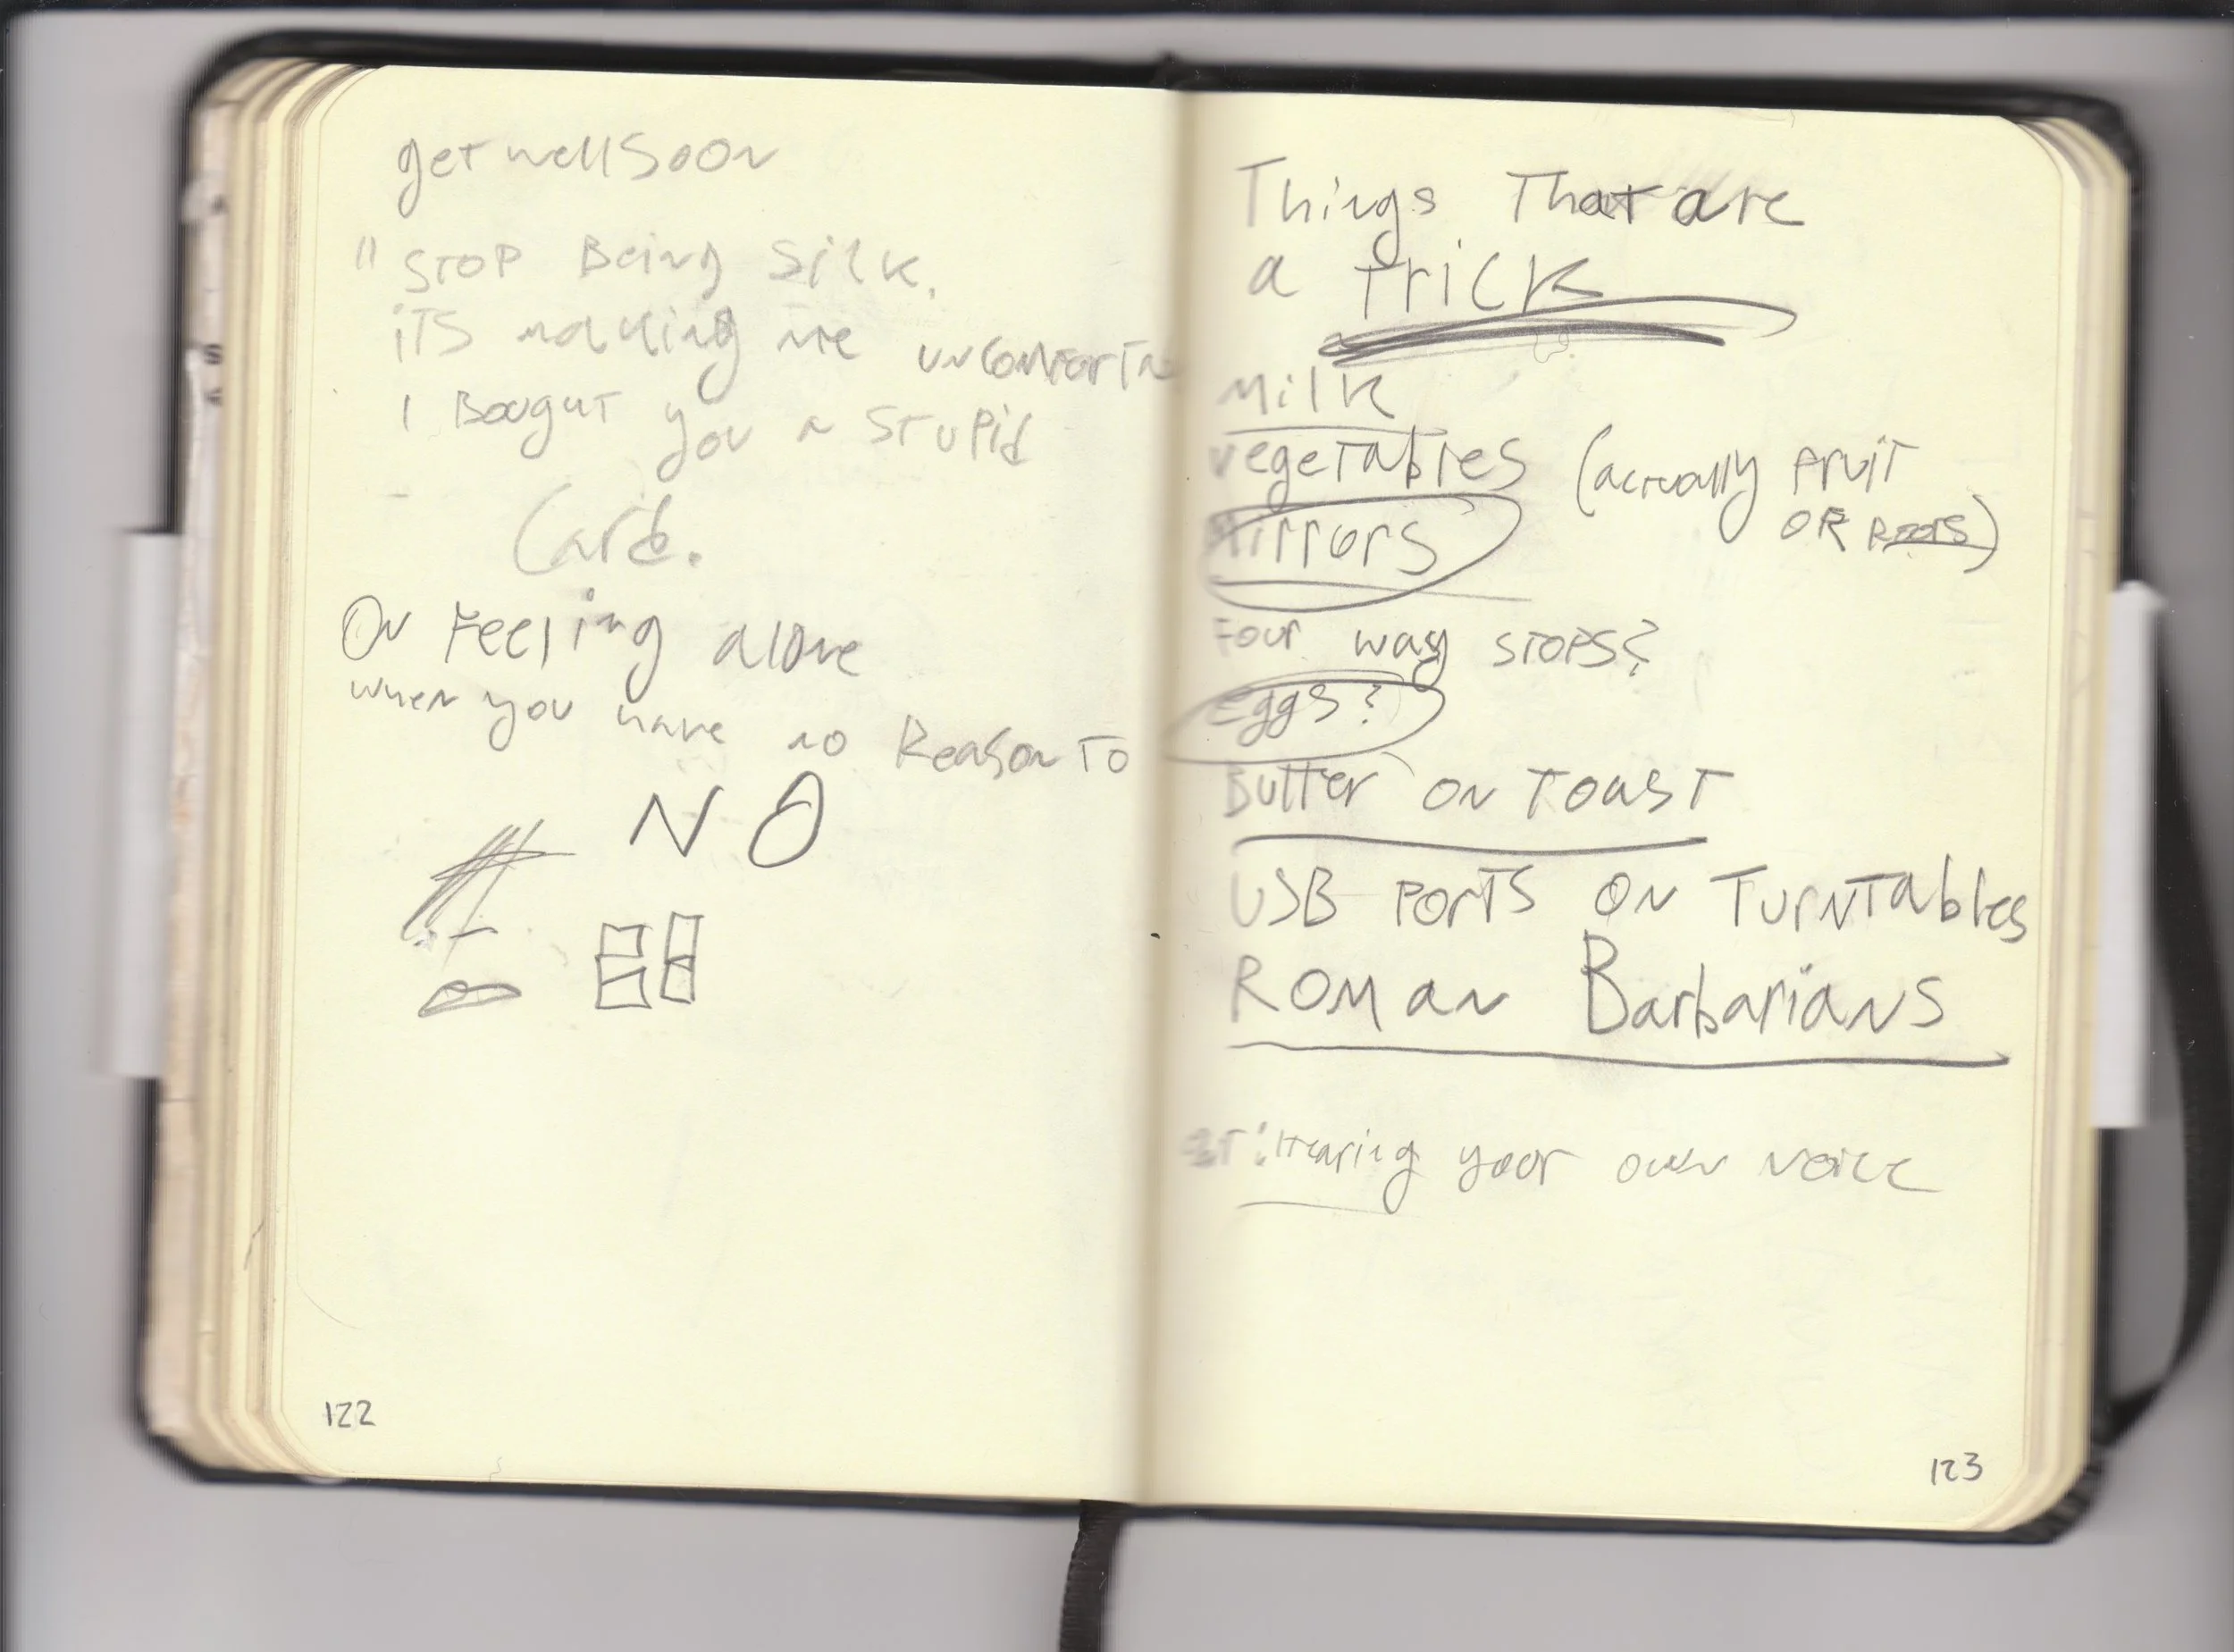 get well soon
" STOP Being SilK.
iTS making me uncomforta
I Bought you a stupid
Card.
On Feeling alone
when you have no Reason To
NO
122
Things That are
a Trick
Milk
vegetables (actually fruit
OR Roots)
Mirrors
Four way stops?
Eggs?
Butter on Toast
USB Ports on Turntables
Roman Barbarians
Hearing your own voice
123